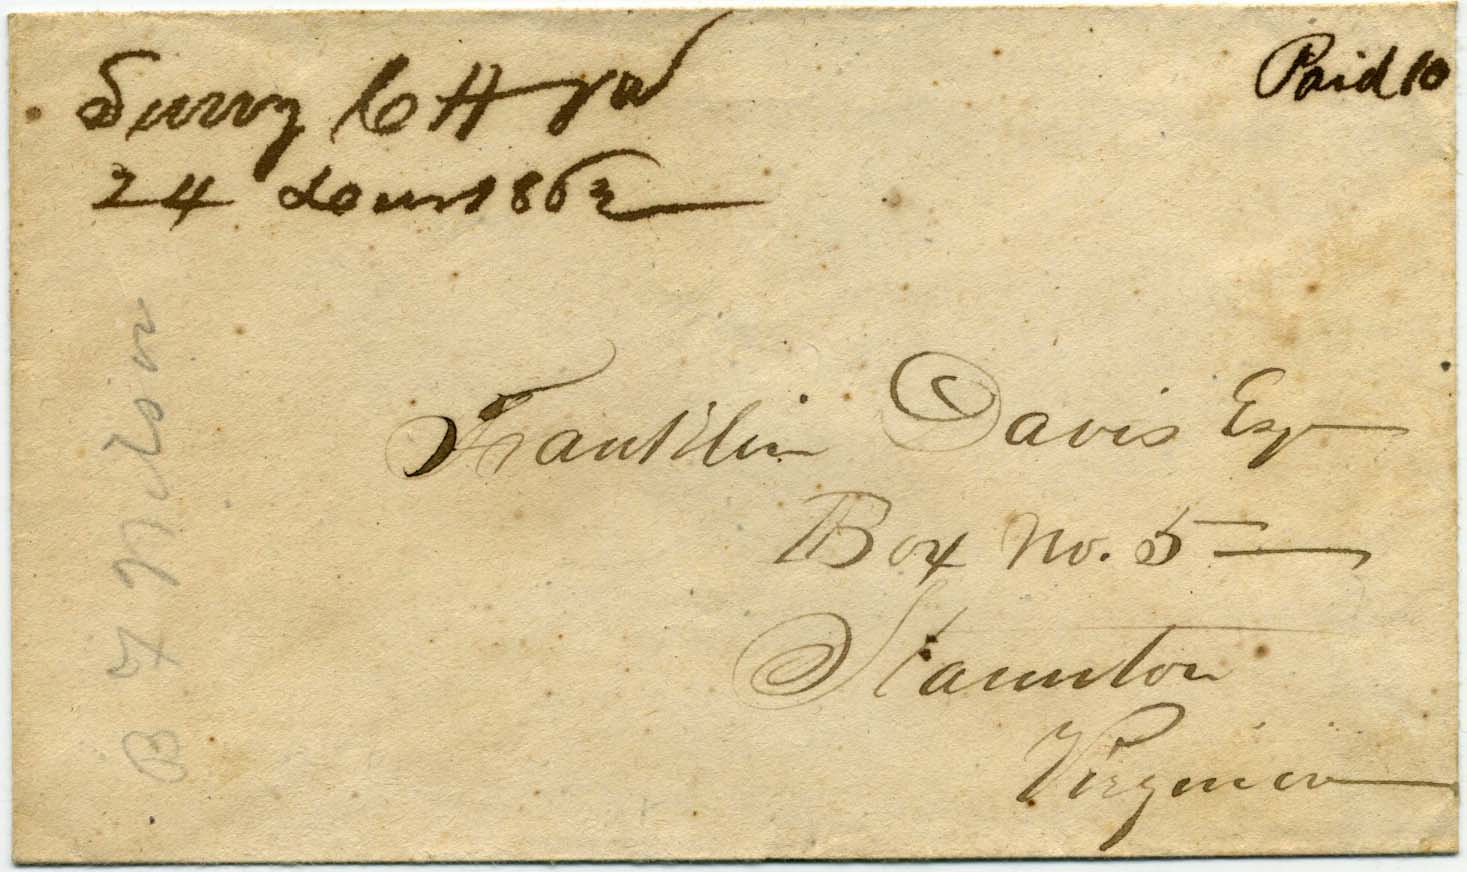 Surry C H Va
Paid 10
24 1862
Franklin Davis Esqr
Box No. 5
Staunton
Virginia
B F Nelson